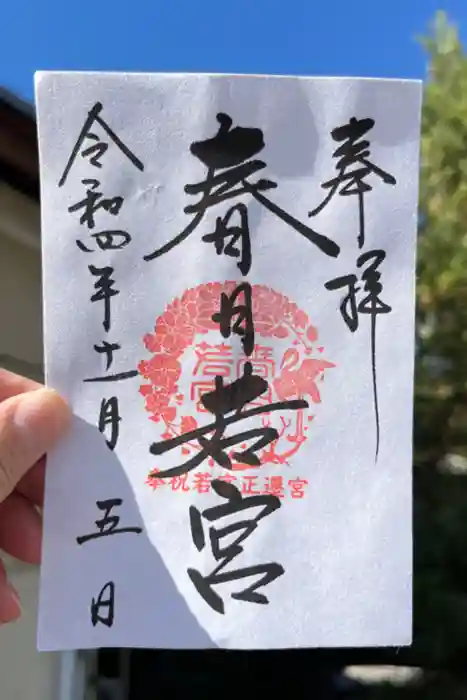 奉拝
春日若宮
奉祝若宮正遷宮
令和四年十一月五日